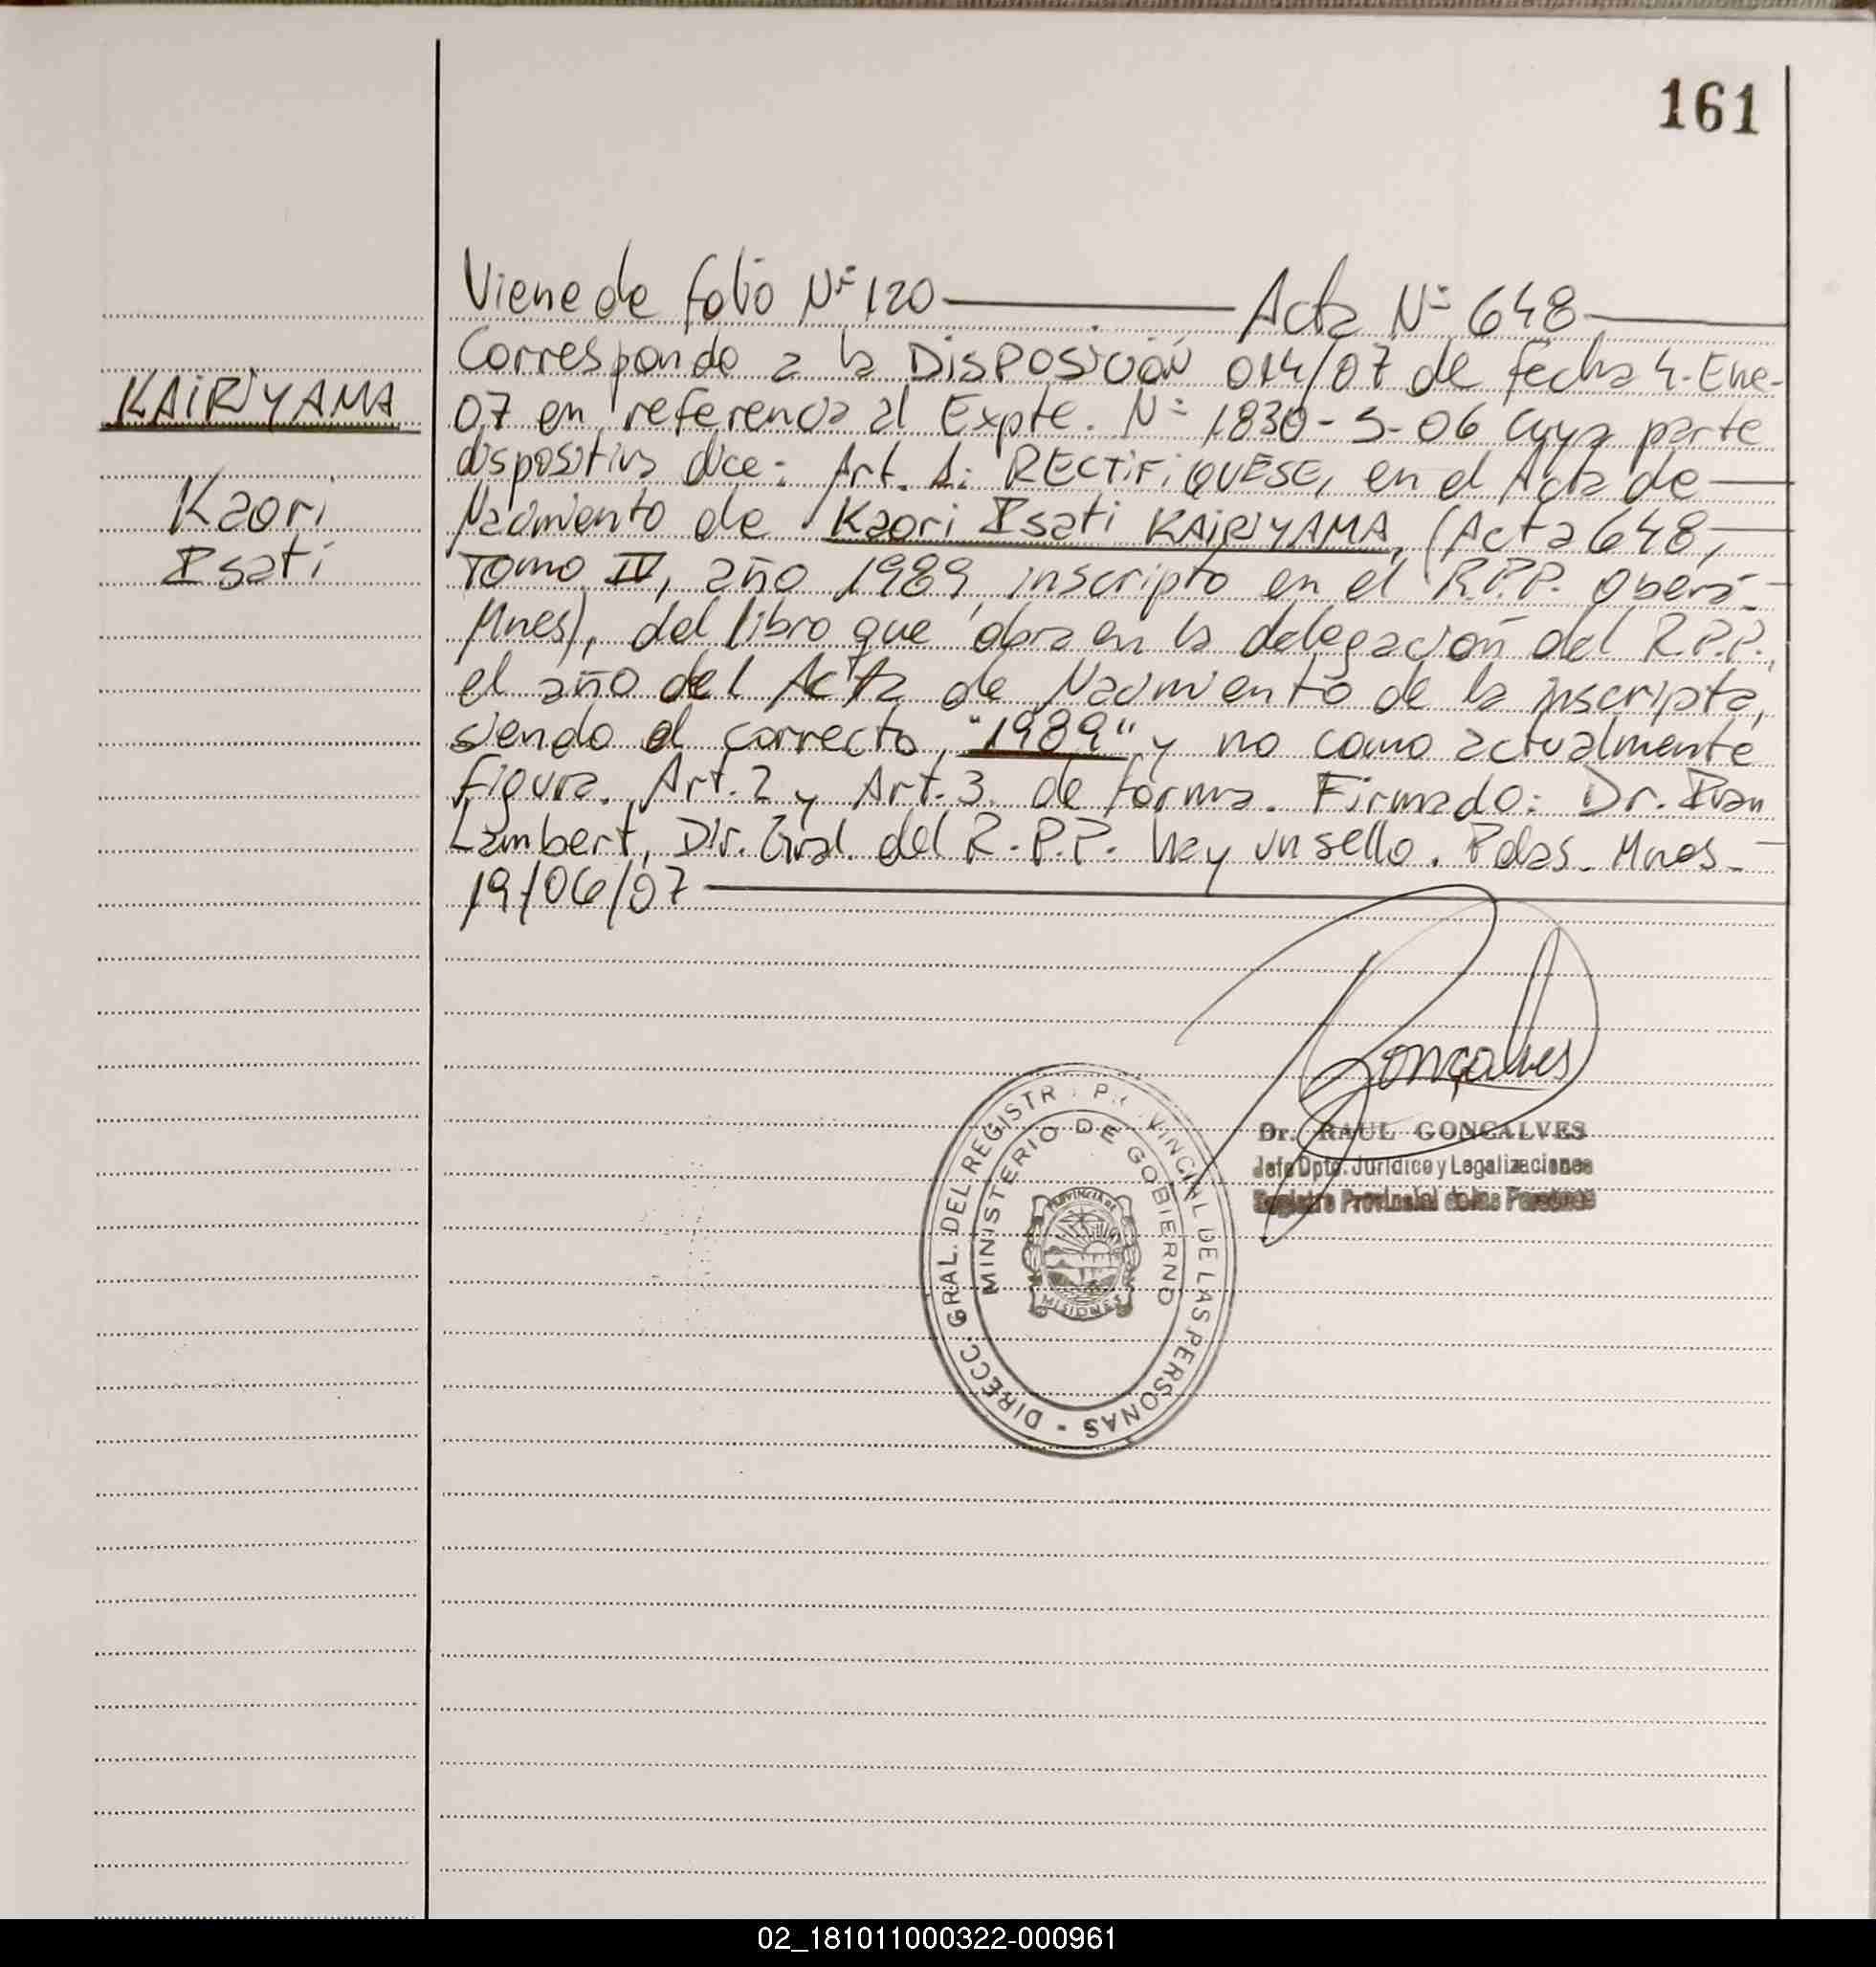 161
Viene de folio Nº 120 — Acta Nº 648 —
Corresponde a la DISPOSICIÓN 014/07 de fecha 4-Ene-
07 en referencia al Expte. Nº 1830-S-06 cuya parte
dispositiva dice: Art. 1: RECTIFIQUESE, en el Acta de —
Nacimiento de Kaori Isati KAIRIYAMA, (Acta 648, —
TOMO IV, año 1989, inscripto en el R.P.P. Oberá -
Mnes), del libro que obra en la delegación del R.P.P.,
el año del Acta de Nacimiento de la inscripta,
siendo el correcto, "1989" y no como actualmente
figura. Art. 2 y Art. 3. de forma. Firmado: Dr. Ivan
Lambert, Dir. Gral. del R.P.P. hay un sello. Pdas. Mnes -
19/06/07 —
KAIRIYAMA
Kaori
Isati
Gonçalves
Dr. RAUL GONCALVES
Jefe Dpto. Jurídico y Legalizaciones
Registro Provincial de las Personas
DIRECC. GRAL. DEL REGISTR PROVINCIAL DE LAS PERSONAS -
MINISTERIO DE GOBIERNO
PROVINCIA DE
MISIONES
02_181011000322-000961